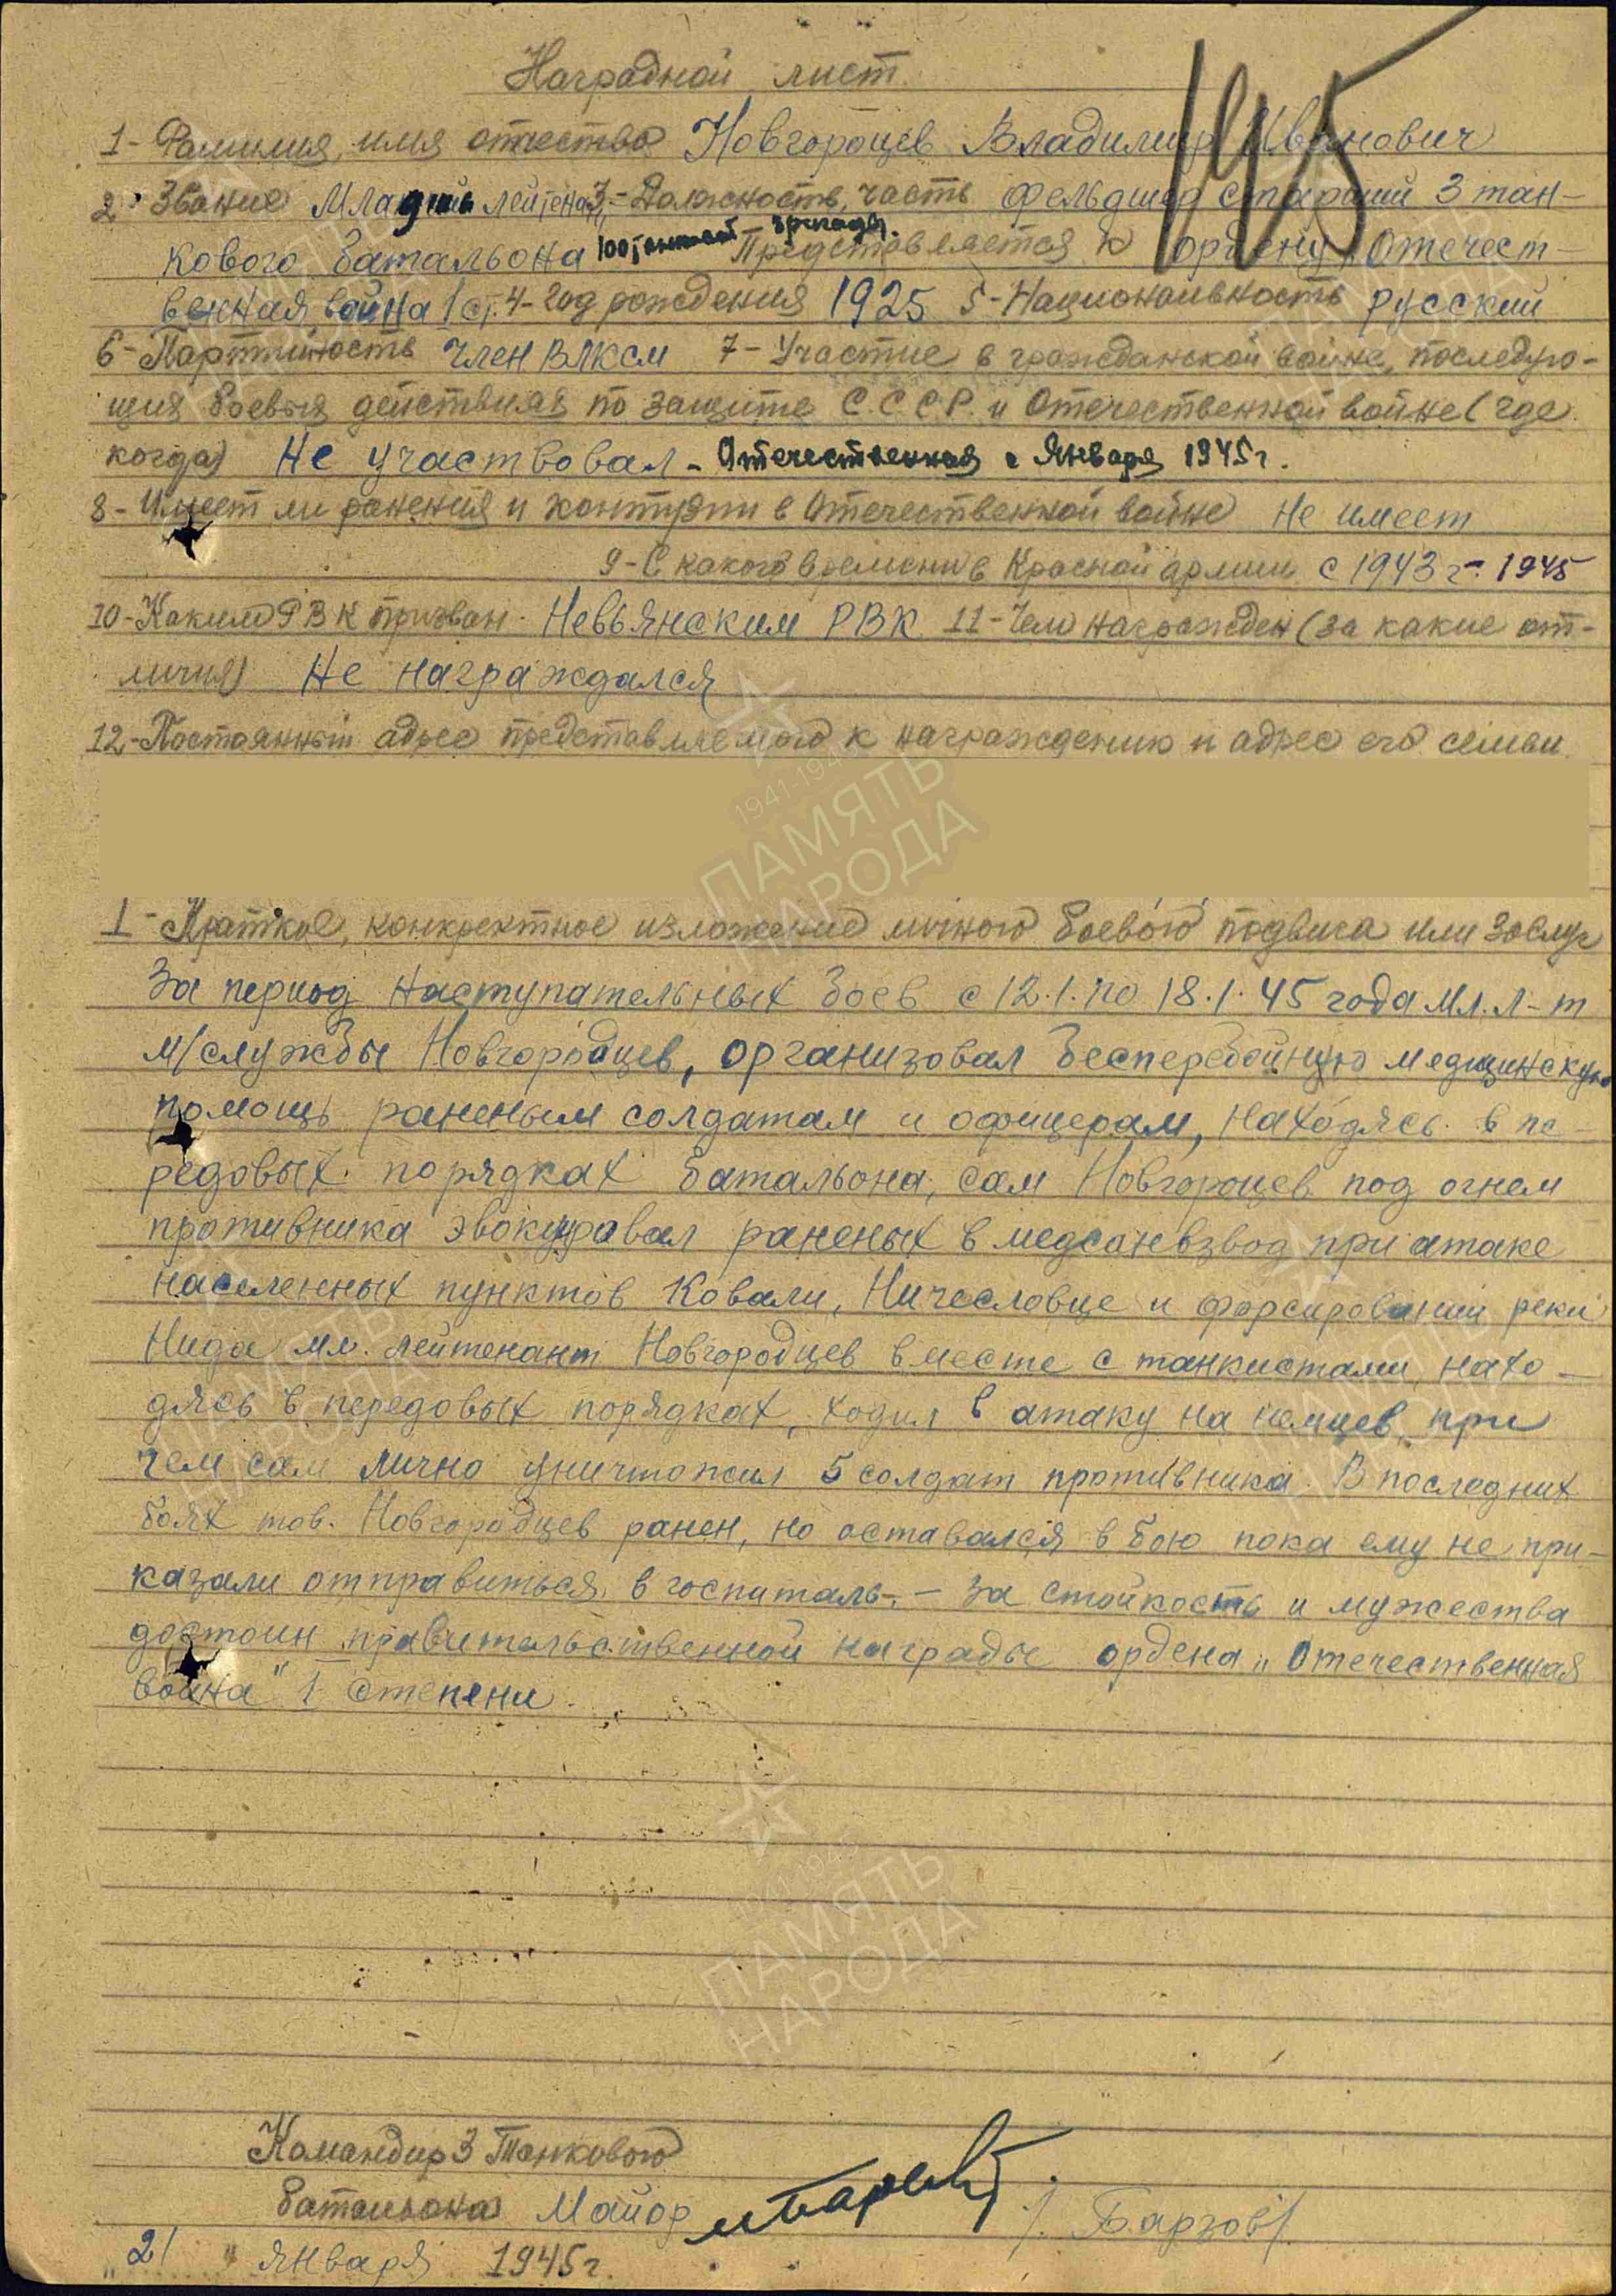 Наградной лист
195
1- Фамилия, имя отчество Новгородцев Владимир Иванович
2. Звание Младший лейтенант 3- Должность, часть фельдшер старший 3 тан-
кового батальона 100 танковой бригады. Представляется к ордену Отечест-
венная война 1 ст. 4- год рождения 1925 5- Национальность русский
6- Партийность член ВЛКСМ 7- Участие в гражданской войне, последую-
щия боевыя действиях по защите С.С.С.Р. и Отечественной войне (где
когда) Не участвовал - Отечественная с Января 1945 г.
8- Имеет ли ранения и контузии в Отечественной войне Не имеет
9- С какого времени в Красной армии с 1943 г - 1945
10- Каким РВК призван Невьянским РВК 11- Чем награжден (за какие от-
личия) Не награждался
12- Постоянный адрес представляемого к награждению и адрес его семьи
1941-1945
ПАМЯТЬ
НАРОДА
I - Краткое, конкретное изложение личного боевого подвига или заслуг
За период наступательных боев с 12.1. по 18.1.45 года мл. л-т
м/службы Новгородцев, организовал бесперебойную медицинскую
помощь раненым солдатам и офицерам, находясь в пе-
редовых порядках батальона, сам Новгородцев под огнем
противника эвокуировал раненых в медсанвзвод при атаке
населенных пунктов Ковали, Ничесловце и форсировании реки
Нида мл. лейтенант Новгородцев вместе с танкистами, нахо-
дясь в передовых порядках, ходил в атаку на немцев, при
чем сам лично уничтожил 5 солдат противника. В последних
боях тов. Новгородцев ранен, но оставался в бою пока ему не при-
казали отправиться в госпиталь. - За стойкость и мужества
достоин правительственной награды ордена „Отечественная
война" I степени.
1941-1945
ПАМЯТЬ
НАРОДА
Командир 3 Танкового
батальона Майор /Барзов/
„21" января 1945 г.